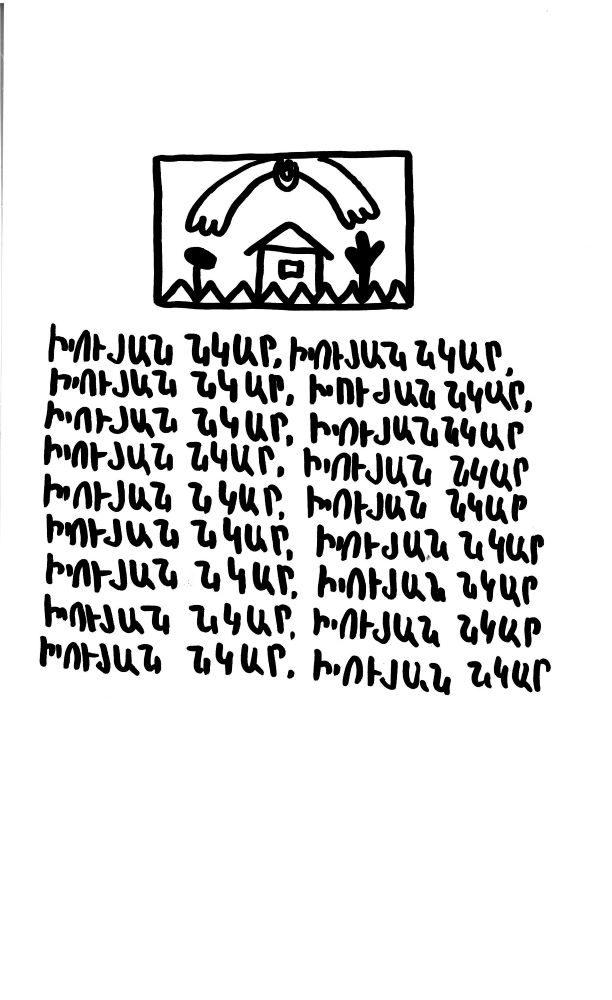 ԽՈՒՅԱՆ ՆԿԱՐ, ԽՈՒՅԱՆ ՆԿԱՐ,
ԽՈՒՅԱՆ ՆԿԱՐ, ԽՈՒՅԱՆ ՆԿԱՐ,
ԽՈՒՅԱՆ ՆԿԱՐ, ԽՈՒՅԱՆ ՆԿԱՐ
ԽՈՒՅԱՆ ՆԿԱՐ, ԽՈՒՅԱՆ ՆԿԱՐ
ԽՈՒՅԱՆ ՆԿԱՐ, ԽՈՒՅԱՆ ՆԿԱՐ
ԽՈՒՅԱՆ ՆԿԱՐ, ԽՈՒՅԱՆ ՆԿԱՐ
ԽՈՒՅԱՆ ՆԿԱՐ, ԽՈՒՅԱՆ ՆԿԱՐ
ԽՈՒՅԱՆ ՆԿԱՐ, ԽՈՒՅԱՆ ՆԿԱՐ
ԽՈՒՅԱՆ ՆԿԱՐ. ԽՈՒՅԱՆ ՆԿԱՐ